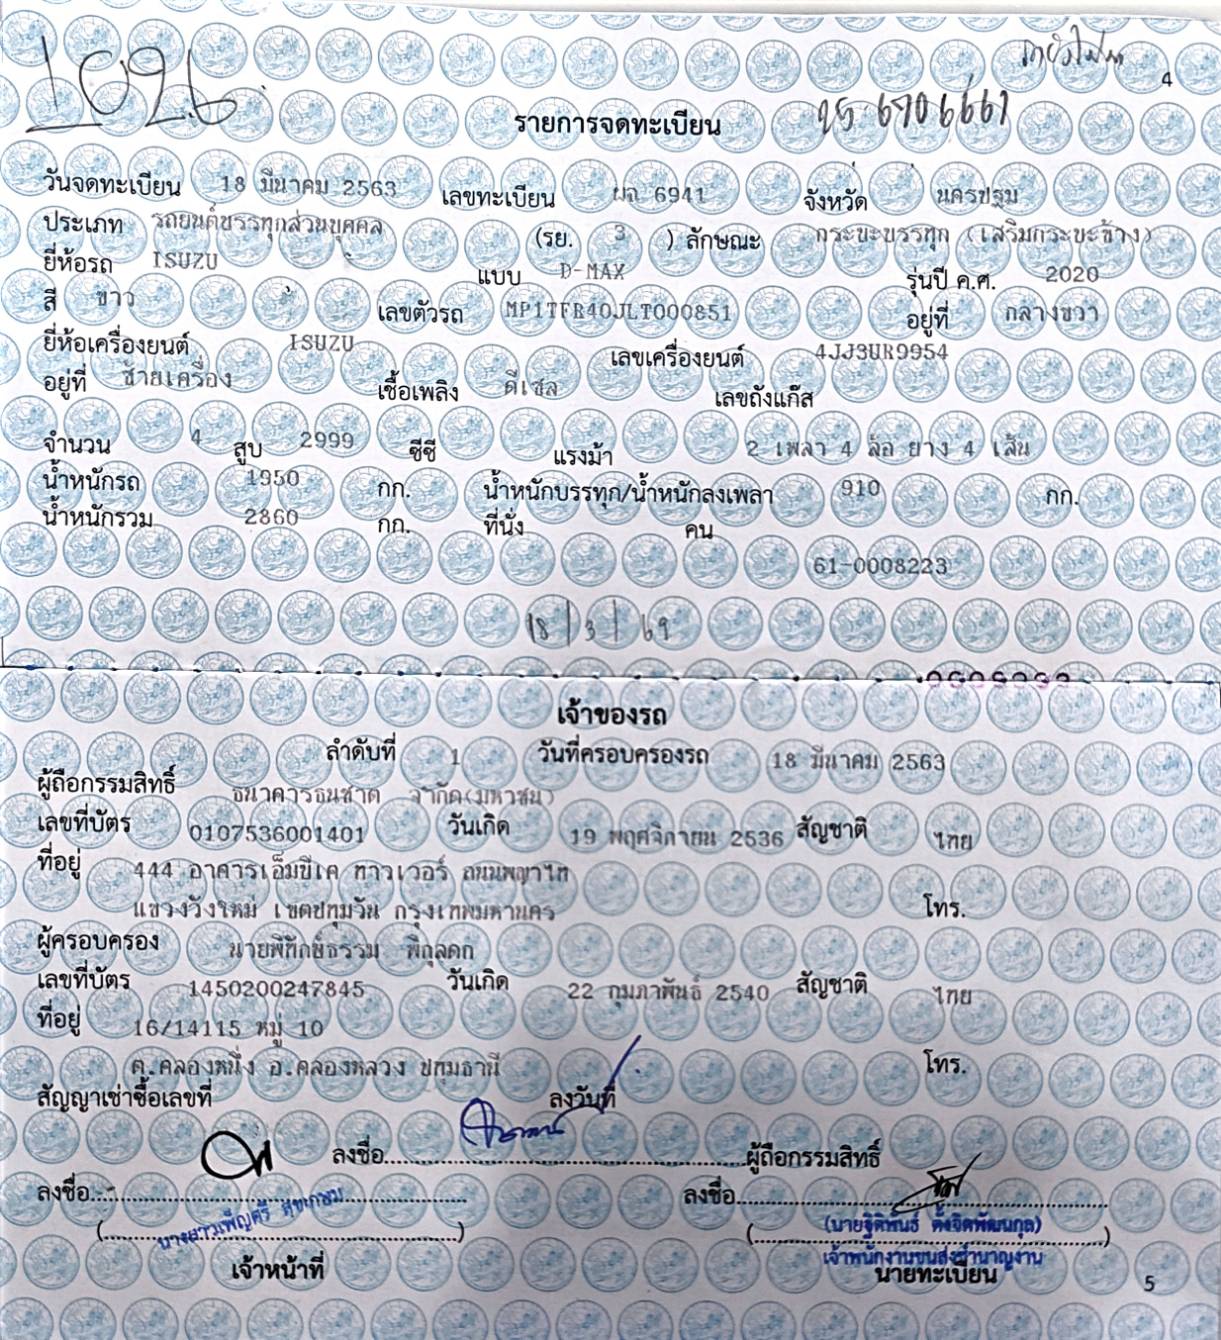 1026
4
รายการจดทะเบียน
วันจดทะเบียน 18 มีนาคม 2563 เลขทะเบียน ผฉ 6941 จังหวัด นครปฐม
ประเภท รถยนต์บรรทุกส่วนบุคคล (รย. 3 ) ลักษณะ กระบะบรรทุก (เสริมกระบะข้าง)
ยี่ห้อรถ ISUZU แบบ D-MAX รุ่นปี ค.ศ. 2020
สี ขาว เลขตัวรถ MP1TFR40JLT000851 อยู่ที่ กลางขวา
ยี่ห้อเครื่องยนต์ ISUZU เลขเครื่องยนต์ 4JJ3UR9954
อยู่ที่ ซ้ายเครื่อง เชื้อเพลิง ดีเซล เลขถังแก๊ส
จำนวน 4 สูบ 2999 ซีซี แรงม้า 2 เพลา 4 ล้อ ยาง 4 เส้น
น้ำหนักรถ 1950 กก. น้ำหนักบรรทุก/น้ำหนักลงเพลา 910 กก.
น้ำหนักรวม 2860 กก. ที่นั่ง คน
61-0008223
18/3/69
เจ้าของรถ
ลำดับที่ 1 วันที่ครอบครองรถ 18 มีนาคม 2563
ผู้ถือกรรมสิทธิ์ ธนาคารธนชาต จำกัด(มหาชน)
เลขที่บัตร 0107536001401 วันเกิด 19 พฤศจิกายน 2536 สัญชาติ ไทย
ที่อยู่ 444 อาคารเอ็มบีเค ทาวเวอร์ ถนนพญาไท
แขวงวังใหม่ เขตปทุมวัน กรุงเทพมหานคร โทร.
ผู้ครอบครอง นายพิทักษ์ธรรม พิกุลดก
เลขที่บัตร 1450200247845 วันเกิด 22 กุมภาพันธ์ 2540 สัญชาติ ไทย
ที่อยู่ 16/14115 หมู่ 10
ต.คลองหนึ่ง อ.คลองหลวง ปทุมธานี โทร.
สัญญาเช่าซื้อเลขที่ ลงวันที่
ลงชื่อ ผู้ถือกรรมสิทธิ์
ลงชื่อ ลงชื่อ
(นางสาวเพ็ญศรี สุขเกษม) (นายฐิติพันธ์ ตั้งจิตพัฒนกุล)
เจ้าพนักงานขนส่งชำนาญงาน
เจ้าหน้าที่ นายทะเบียน
5